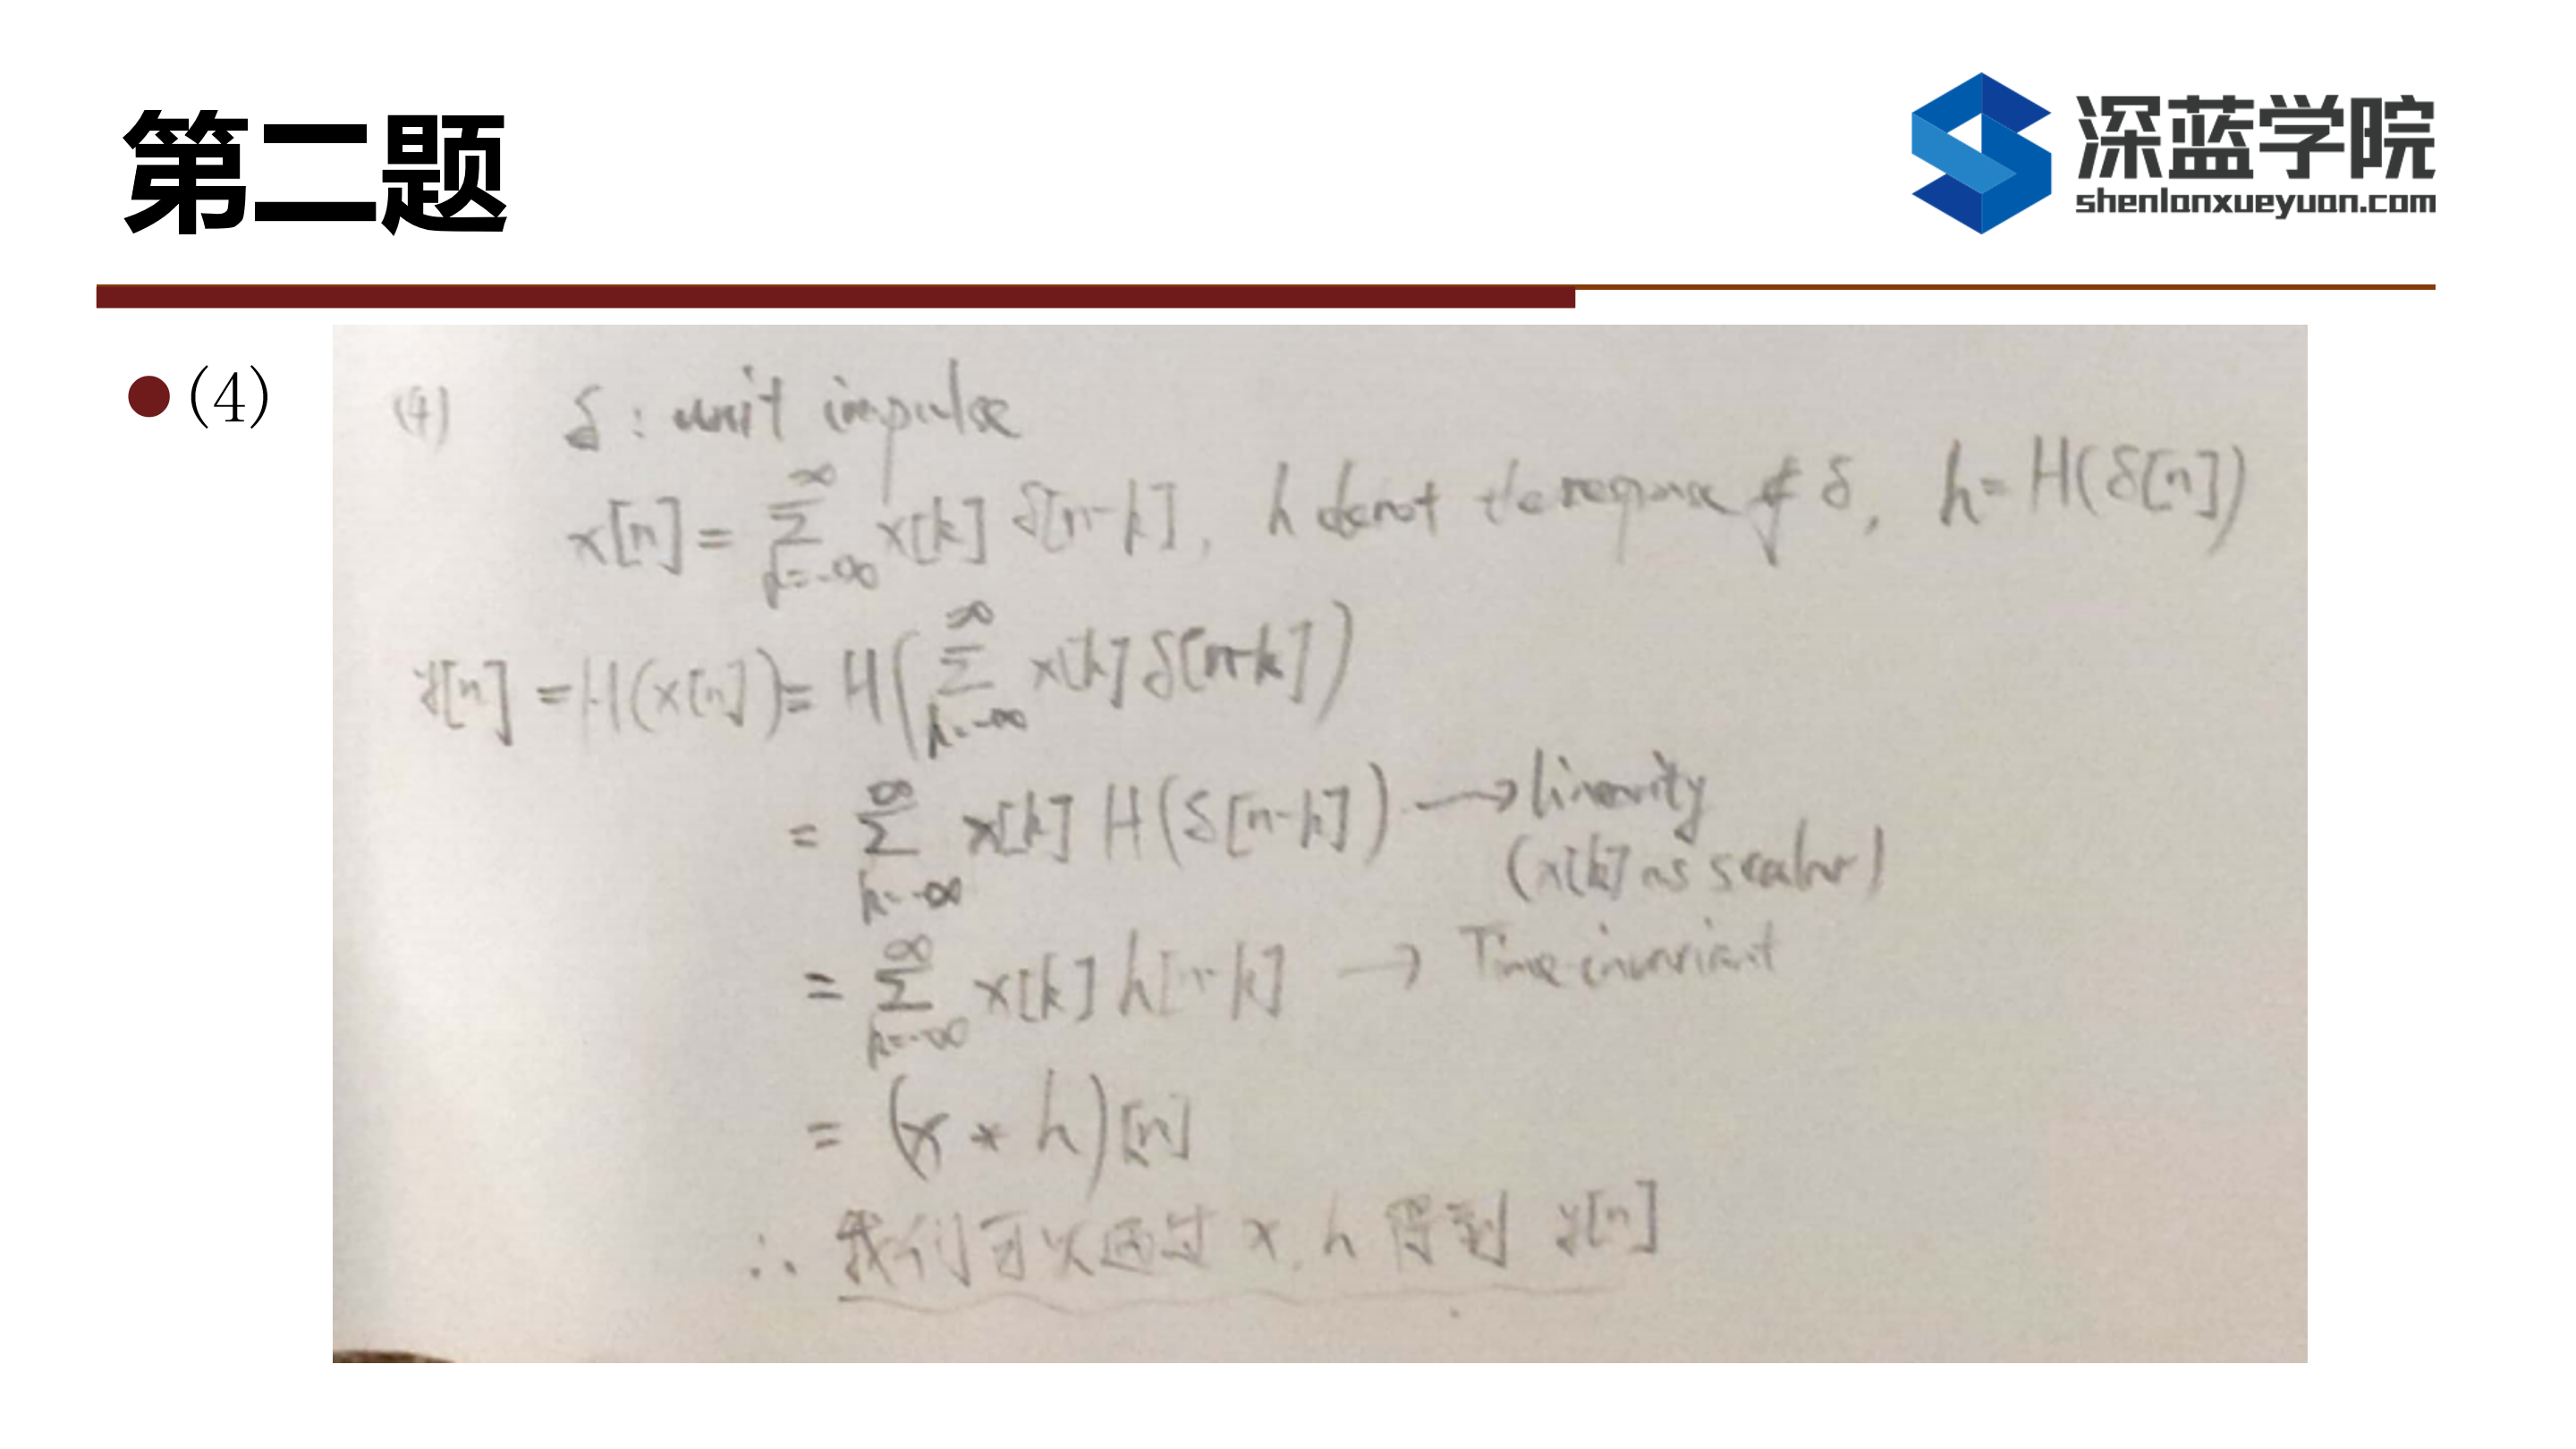 第二题
深蓝学院
shenlanxueyuan.com
(4)
(4) δ : unit impulse
x[n] = ∑_{k=-∞}^{∞} x[k] δ[n-k], h denot the response of δ, h = H(δ[n])
y[n] = H(x[n]) = H(∑_{k=-∞}^{∞} x[k] δ[n-k])
= ∑_{k=-∞}^{∞} x[k] H(δ[n-k]) → linearity
(x[k] as scalar)
= ∑_{k=-∞}^{∞} x[k] h[n-k] → Time-invariant
= (x * h)[n]
∴ 我们可以通过 x, h 得到 y[n]